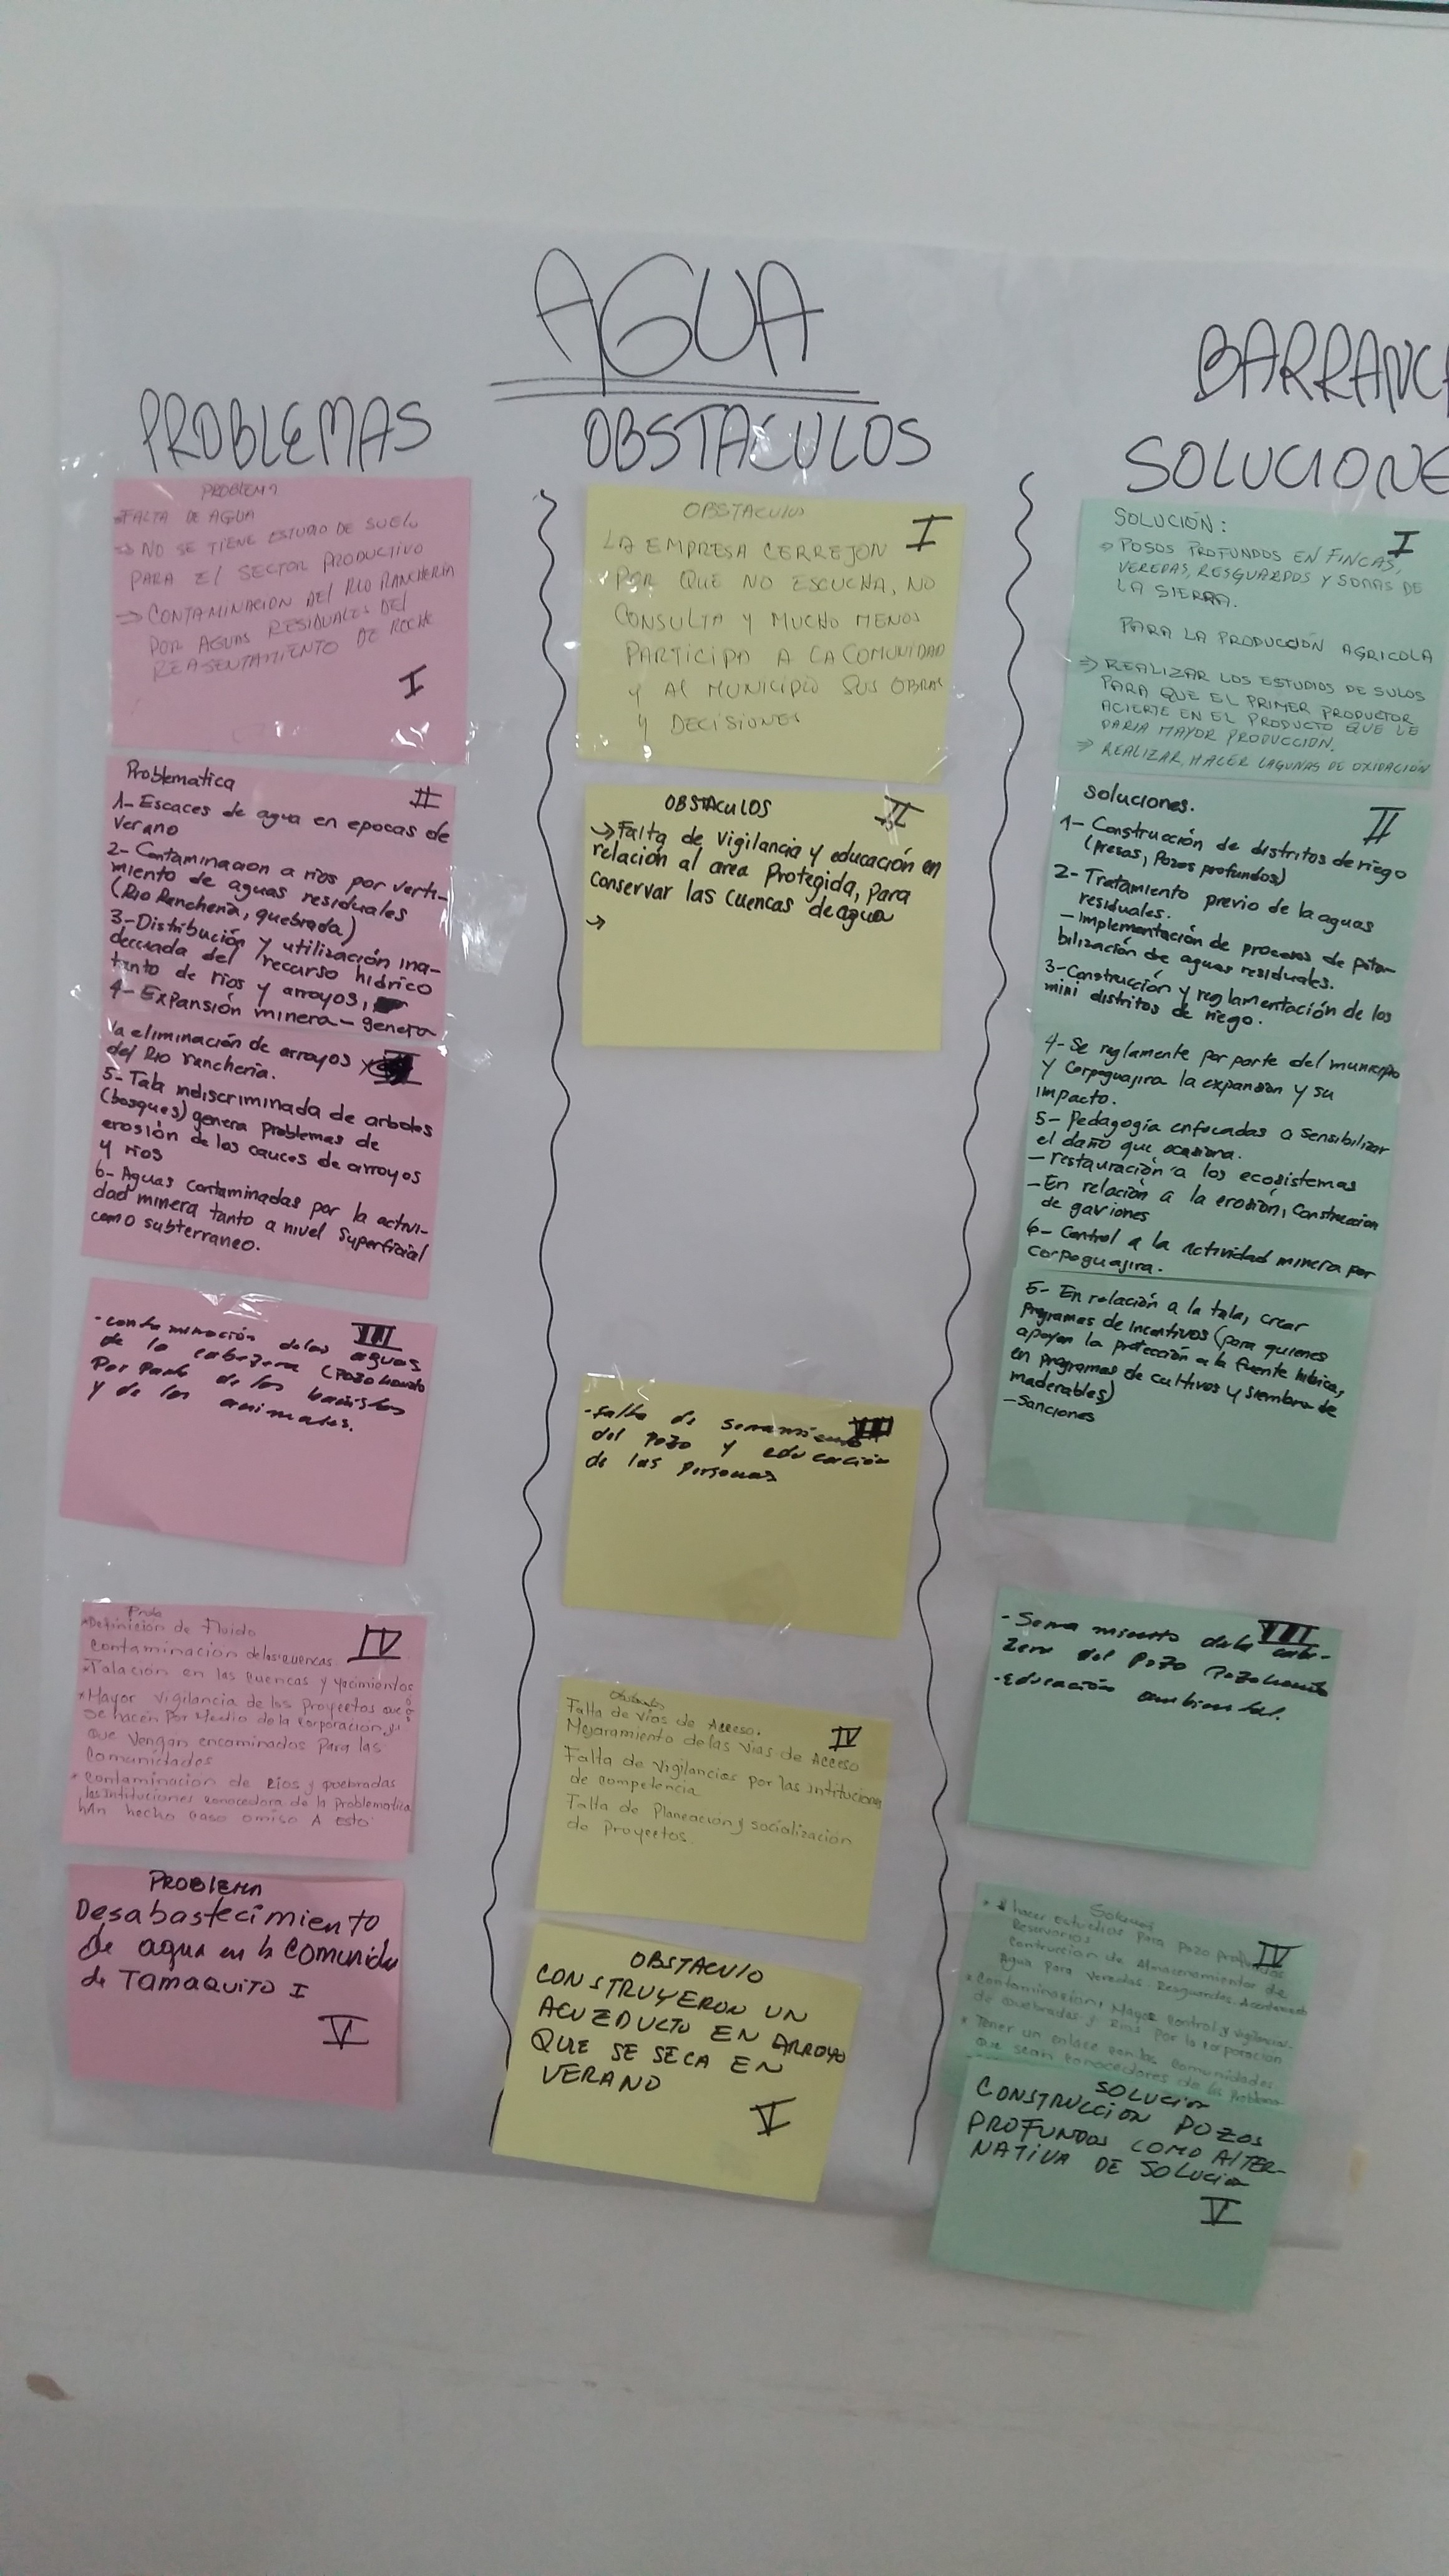 AGUA
BARRANC
PROBLEMAS
PROBLEMA
FALTA DE AGUA
⇒ NO SE TIENE ESTUDIO DE SUELO
PARA EL SECTOR PRODUCTIVO
⇒ CONTAMINACION DEL RIO RANCHERIA
POR AGUAS RESIDUALES DEL
REASENTAMIENTO DE ROCHE
I
Problematica
II
1- Escaces de agua en epocas de
verano
2- Contaminacion a rios por verti-
miento de aguas residuales
(Rio Rancheria, quebrada)
3- Distribución y utilización ina-
decuada del recurso hidrico
tanto de rios y arroyos,
4- Expansión minera - genera
la eliminación de arroyos y
del Rio rancheria.
5- Tala indiscriminada de arboles
(bosques) genera problemas de
erosión de los cauces de arroyos
y rios
6- Aguas contaminadas por la activi-
dad minera tanto a nivel superficial
como subterraneo.
III
- contaminación de las aguas
de la cabezera (Pozo hondo
Por parte de los bañistas
y de los animales.
Prob
IV
*Definición de Fluido
Contaminacion de las cuencas
*Talación en las cuencas y yacimientos
*Mayor vigilancia de los Proyectos que
se hacen por Medio de la corporación y
que vengan encaminados para las
Comunidades
* Contaminacion de Rios y quebradas
las Intituciones conocedora de la Problematica
han hecho caso omiso A esto
PROBLEMA
Desabastecimiento
de agua en la Comunida
de TAMAQUITO I
V
OBSTACULOS
OBSTACULO
I
LA EMPRESA CERREJON
POR QUE NO ESCUCHA, NO
CONSULTA Y MUCHO MENOS
PARTICIPA A LA COMUNIDAD
Y AL MUNICIPIO SUS OBRAS
Y DECISIONES
OBSTACULOS
II
→ Falta de vigilancia y educación en
relación al area Protegida, para
conservar las cuencas de agua
→
III
- falta de serramiento
del pozo y educación
de las personas
Obstaculos
IV
Falta de vias de Acceso.
Mejoramiento de las vias de Acceso
Falta de vigilancias por las intituciones
de competencia
Falta de Planeacion y socialización
de Proyectos.
OBSTACULO
CONSTRUYERON UN
ACUEDUCTO EN ARROYO
QUE SE SECA EN
VERANO
V
SOLUCIONE
SOLUCIÓN:
I
⇒ POSOS PROFUNDOS EN FINCAS,
VEREDAS, RESGUARDOS Y SONAS DE
LA SIERRA.
PARA LA PRODUCCIÓN AGRICOLA
⇒ REALIZAR LOS ESTUDIOS DE SULOS
PARA QUE EL PRIMER PRODUCTOR
ACIERTE EN EL PRODUCTO QUE LE
DARIA MAYOR PRODUCCIÓN.
⇒ REALIZAR, HACER LAGUNAS DE OXIDACIÓN
soluciones.
II
1- Construcción de distritos de riego
(presas, Pozos profundos)
2- Tratamiento previo de la aguas
residuales.
- Implementación de procesos de pota-
bilización de aguas residuales.
3- Construcción y reglamentación de los
mini distritos de riego.
4- Se reglamente por parte del municipio
y Corpoguajira la expansion y su
impacto.
5- Pedagogía enfocadas a sensibilizar
el daño que ocasiona.
- restauración a los ecosistemas
- En relación a la erosión, construccion
de gaviones
6- Control a la actividad minera por
corpoguajira.
5- En relación a la tala, crear
Programas de incentivos (para quienes
apoyan la protección a la fuente hidrica,
en programas de cultivos y siembra de
maderables)
- Sanciones
III
- Serramiento de la cabe-
zera del Pozo (Pozo hondo
- educación ambiental.
IV
* hacer estudios para pozo profundos
Reservorios
Contruccion de Almacenamientor de
Agua para Veredas. Resguardos,
* Contaminacion, Mayor control y vigilancias.
de quebradas y Rios por la corporacion
* Tener un enlace con las comunidades
que sean conocedores de los problema
SOLUCION
CONSTRUCCION POZOS
PROFUNDOS COMO ALTER-
NATIVA DE SOLUCION
V